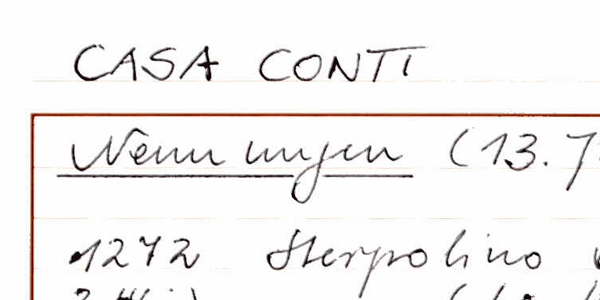 CASA CONTI
Nennungen (13.7
1272 Sterpolino